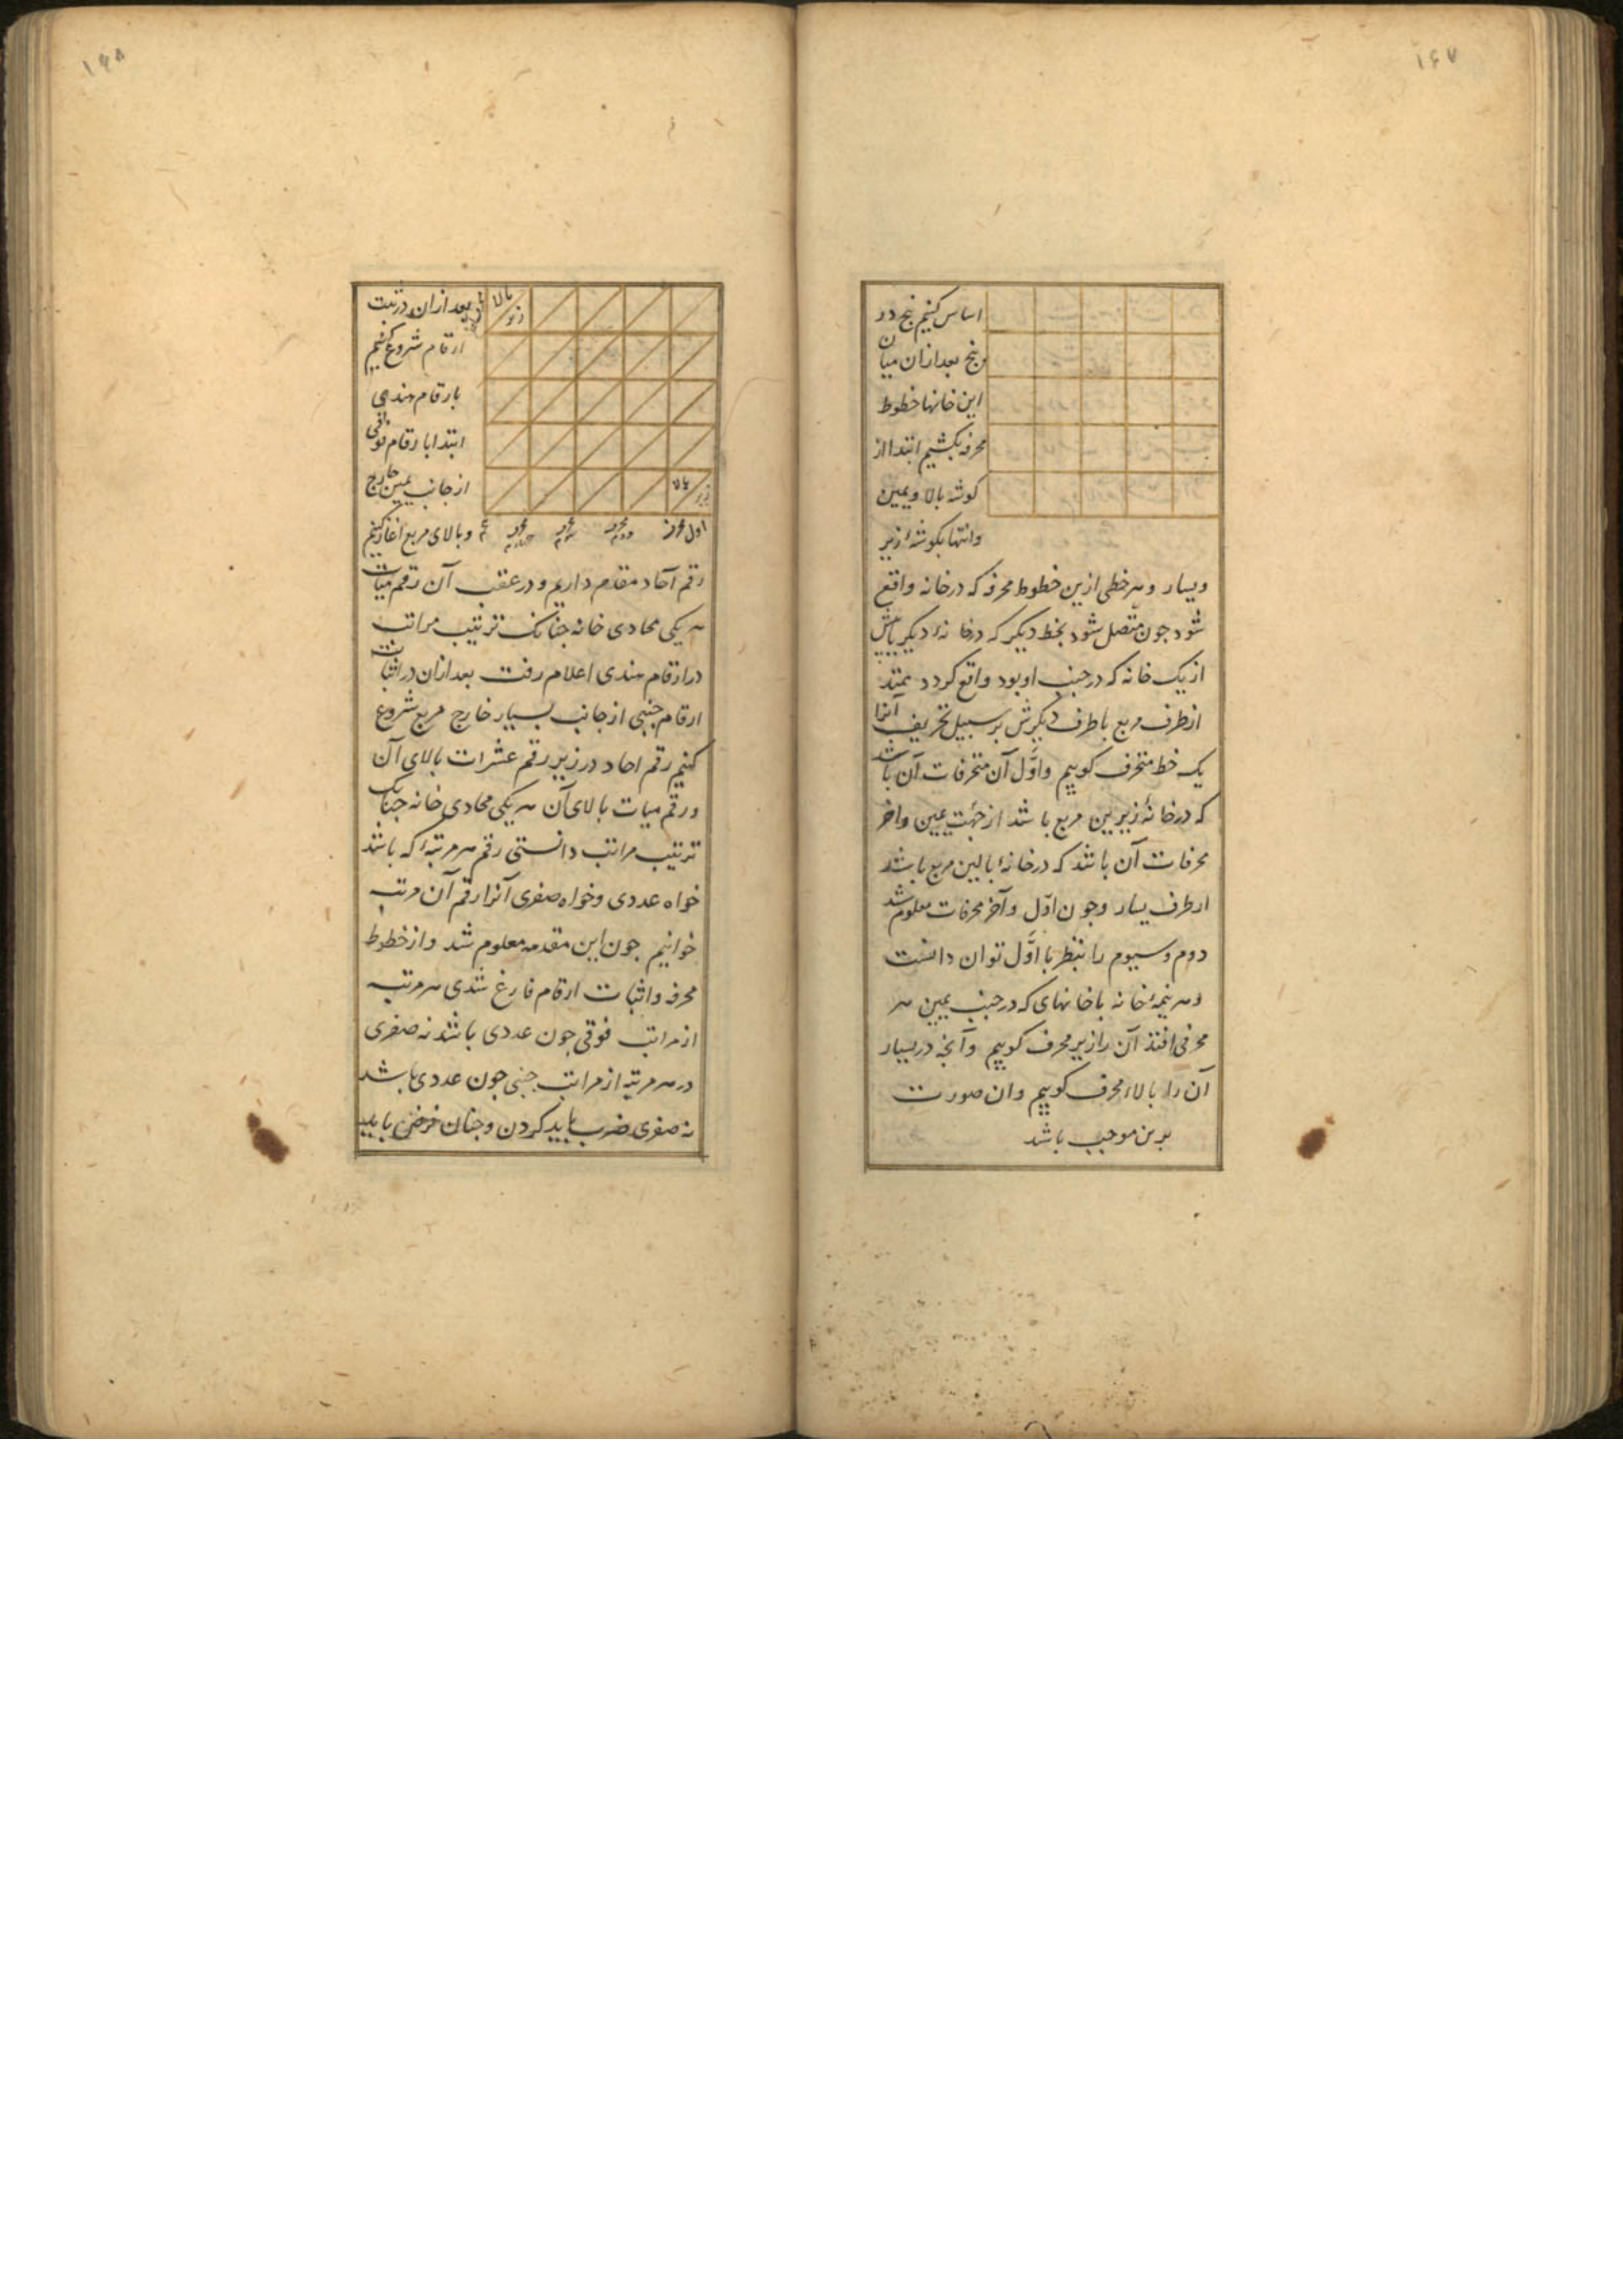 ۱۶۷
اساس کنیم پنج در
پنج بعد ازان میان
این خانها خطوط
محرفه بکشیم ابتدا از
کوشه بالا و یمین
و انتها بکوشهٔ زیر
و یسار و هر خطی ازین خطوط محرفه که در خانه واقع
شود جون متصل شود بخط دیکر که در خانهٔ دیکر یا بیش
از یک خانه که در جنب او بود واقع کردد ممتد
از طرف مربع با طرف دیکرش بر سبیل تحریف آنرا
یک خط منحرف کوییم و اوّل آن منحرفات آن باشد
که در خانهٔ زیرین مربع باشد از جهت یمین و اخر
محرفات آن باشد که در خانهٔ بالین مربع باشد
از طرف یسار و جون اوّل و آخر محرفات معلوم شد
دوم و سیوم را بنظر با اوّل توان دانست
و هر نیمهٔ خانه با خانهای که در جنب یمین هر
محرفی افتد آن را زیر محرف کوییم و آنجه در یسار
آن را بالاء محرف کوییم و ان صورت
برین موجب باشد
۱۶۸
بالا
زیر
بعد ازان در ثبت
ارقام شروع کنیم
بارقام هندی
ابتدا بارقام فوقی
از جانب یمین خارج
بالا
زیر
و بالای مربع اغاز کنیم
اول محرف
رقم آحاد مقدم داریم و در عقب آن رقم میات
هر یکی محاذی خانه جنانک ترتیب مراتب
در ارقام هندی اعلام رفت بعد ازان در اثبات
ارقام جنبی از جانب یسار خارج مربع شروع
کنیم رقم احاد در زیر رقم عشرات بالای آن
و رقم میات بالای آن هر یکی محاذی خانه جنانک
ترتیب مراتب دانستی رقم هر مرتبهٔ که باشد
خواه عددی و خواه صفری آنرا رقم آن مرتبه
خوانیم جون این مقدمه معلوم شد و از خطوط
محرفه و اثبات ارقام فارغ شدی هر مرتبه
از مراتب فوقی جون عددی باشد نه صفری
در هر مرتبه از مراتب جنبی جون عددی باشد
نه صفری ضرب باید کردن و جنان فرض باید